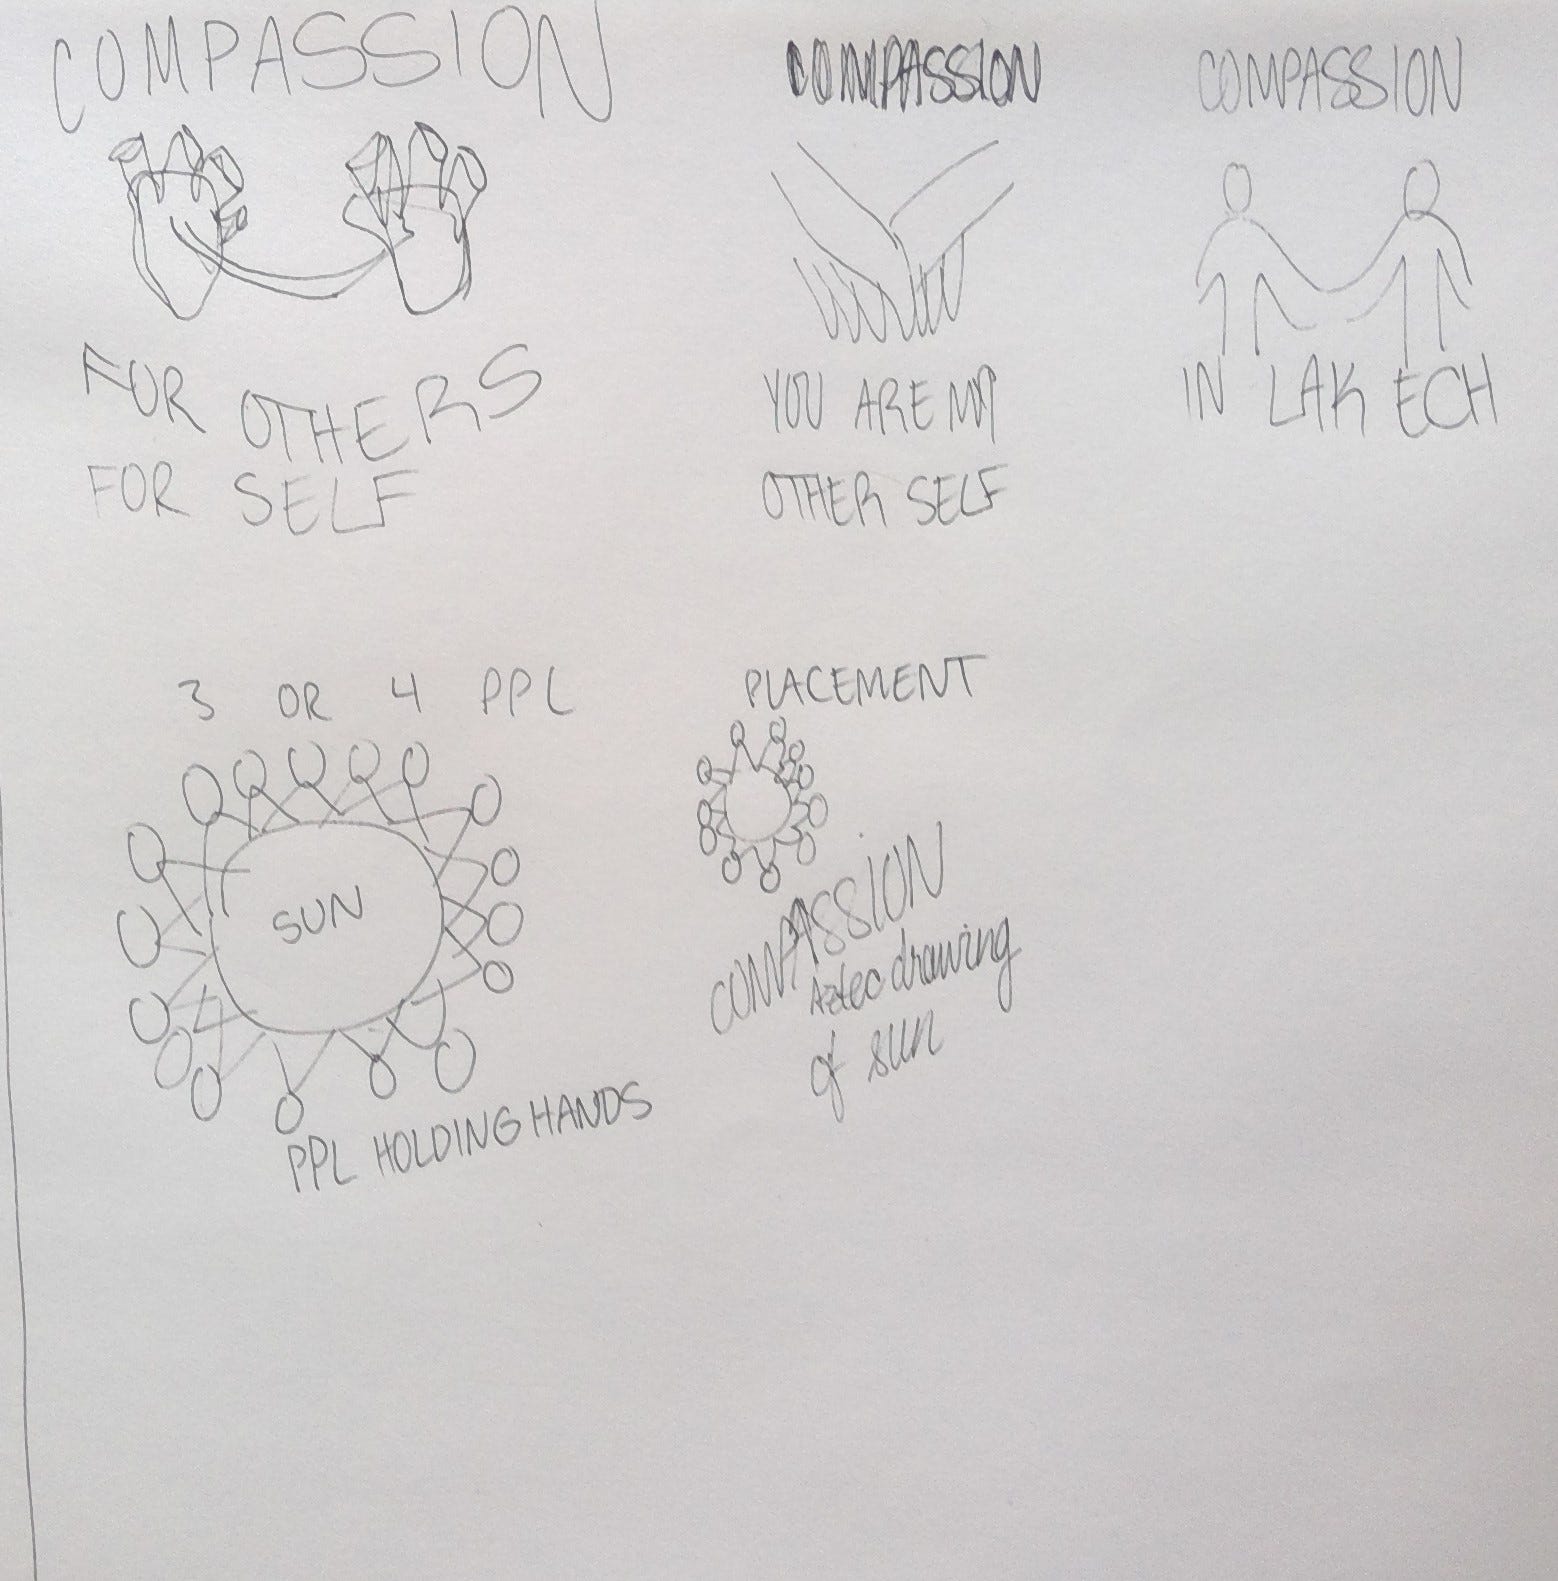 COMPASSION
FOR OTHERS
FOR SELF
COMPASSION
YOU ARE MY
OTHER SELF
COMPASSION
IN LAK ECH
3 OR 4 PPL
SUN
PPL HOLDING HANDS
PLACEMENT
COMPASSION
Aztec drawing
of sun